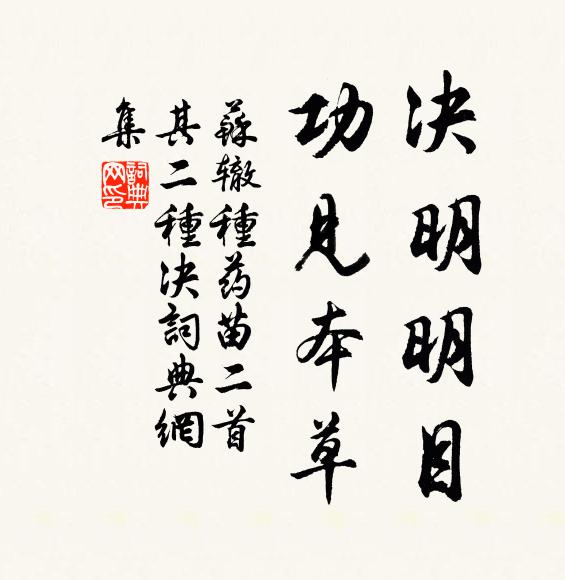 决明明目
功見本草
蘇辙種药苗二首
其二種决詞典網
集
詞典网印